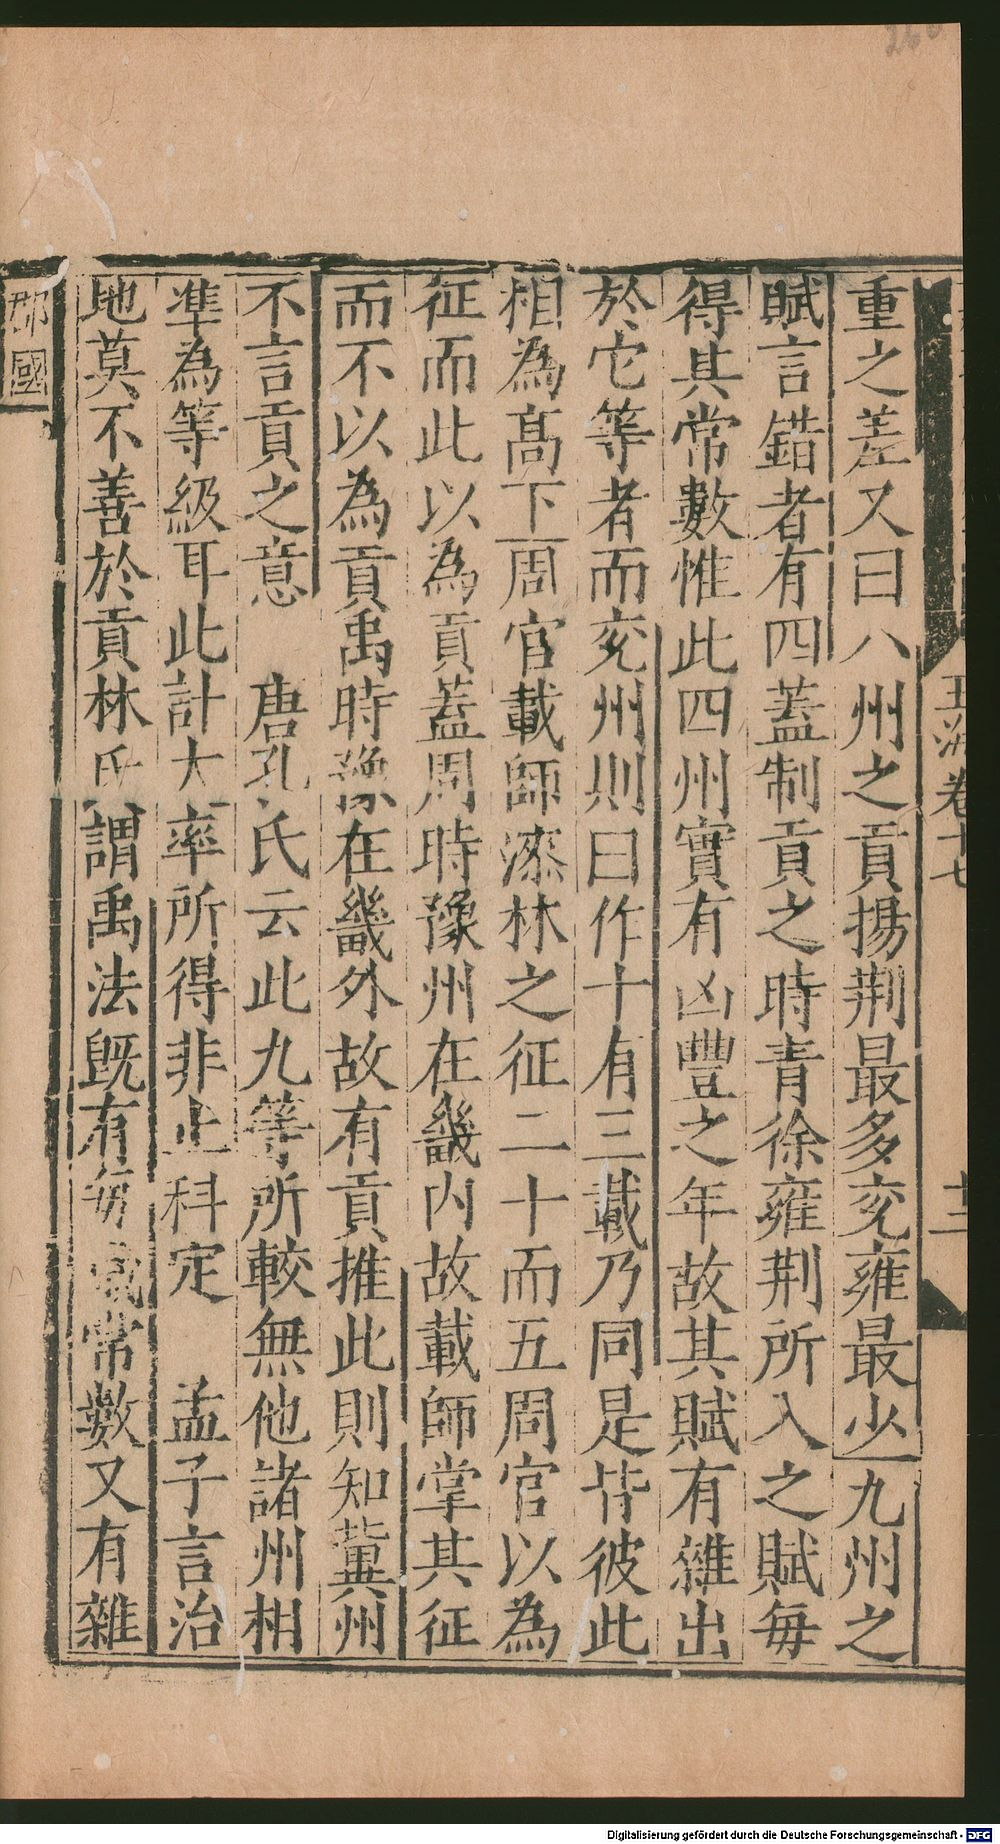 玉海卷十七
重之差又曰八州之貢揚荆最多兖雍最少九州之
賦言錯者有四蓋制貢之時青徐雍荆所入之賦每
得其常數惟此四州實有凶豐之年故其賦有雜出
於它等者而兖州則曰作十有三載乃同是皆彼此
相為髙下周官載師漆林之征二十而五周官以為
征而此以為貢蓋周時豫州在畿内故載師掌其征
而不以為貢禹時豫在畿外故有貢推此則知冀州
不言貢之意 唐孔氏云此九等所較無他諸州相
凖為等級耳此計大率所得非止科定 孟子言治
地莫不善於貢林氏謂禹法既有每歲常數又有雜
郡國
Digitalisierung gefördert durch die Deutsche Forschungsgemeinschaft - DFG